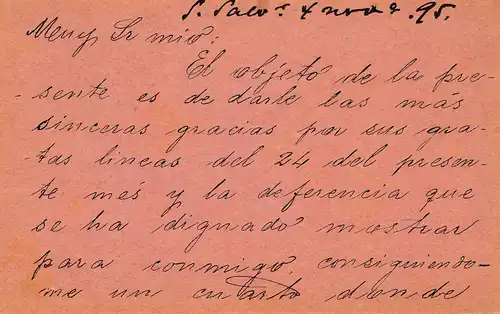 S. Salvr. 4 novre. 95.
Muy Sr mio:
El objeto de la pre-
sente es de darle las más
sinceras gracias por sus gra-
tas lineas del 24 del presen-
te més y la deferencia que
se ha dignado mostrar
para conmigo, consiguiendo-
me un cuarto donde